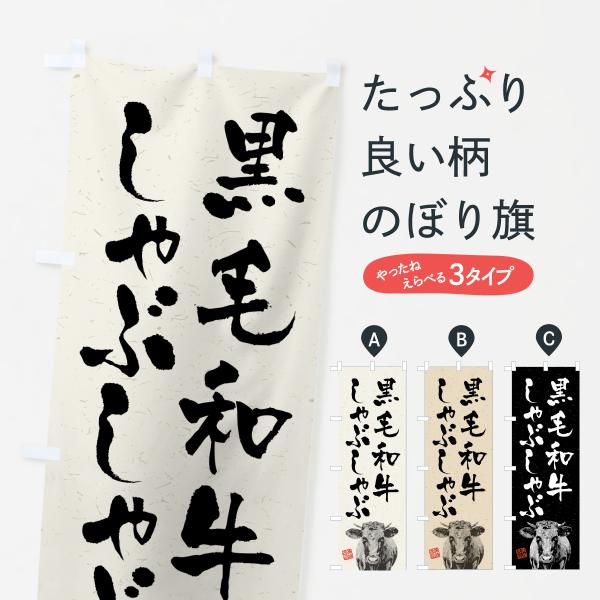 黒毛和牛
しゃぶしゃぶ
たっぷり
良い柄
のぼり旗
やったね
えらべる3タイプ
A
B
C
黒毛和牛
しゃぶしゃぶ
黒毛和牛
しゃぶしゃぶ
黒毛和牛
しゃぶしゃぶ